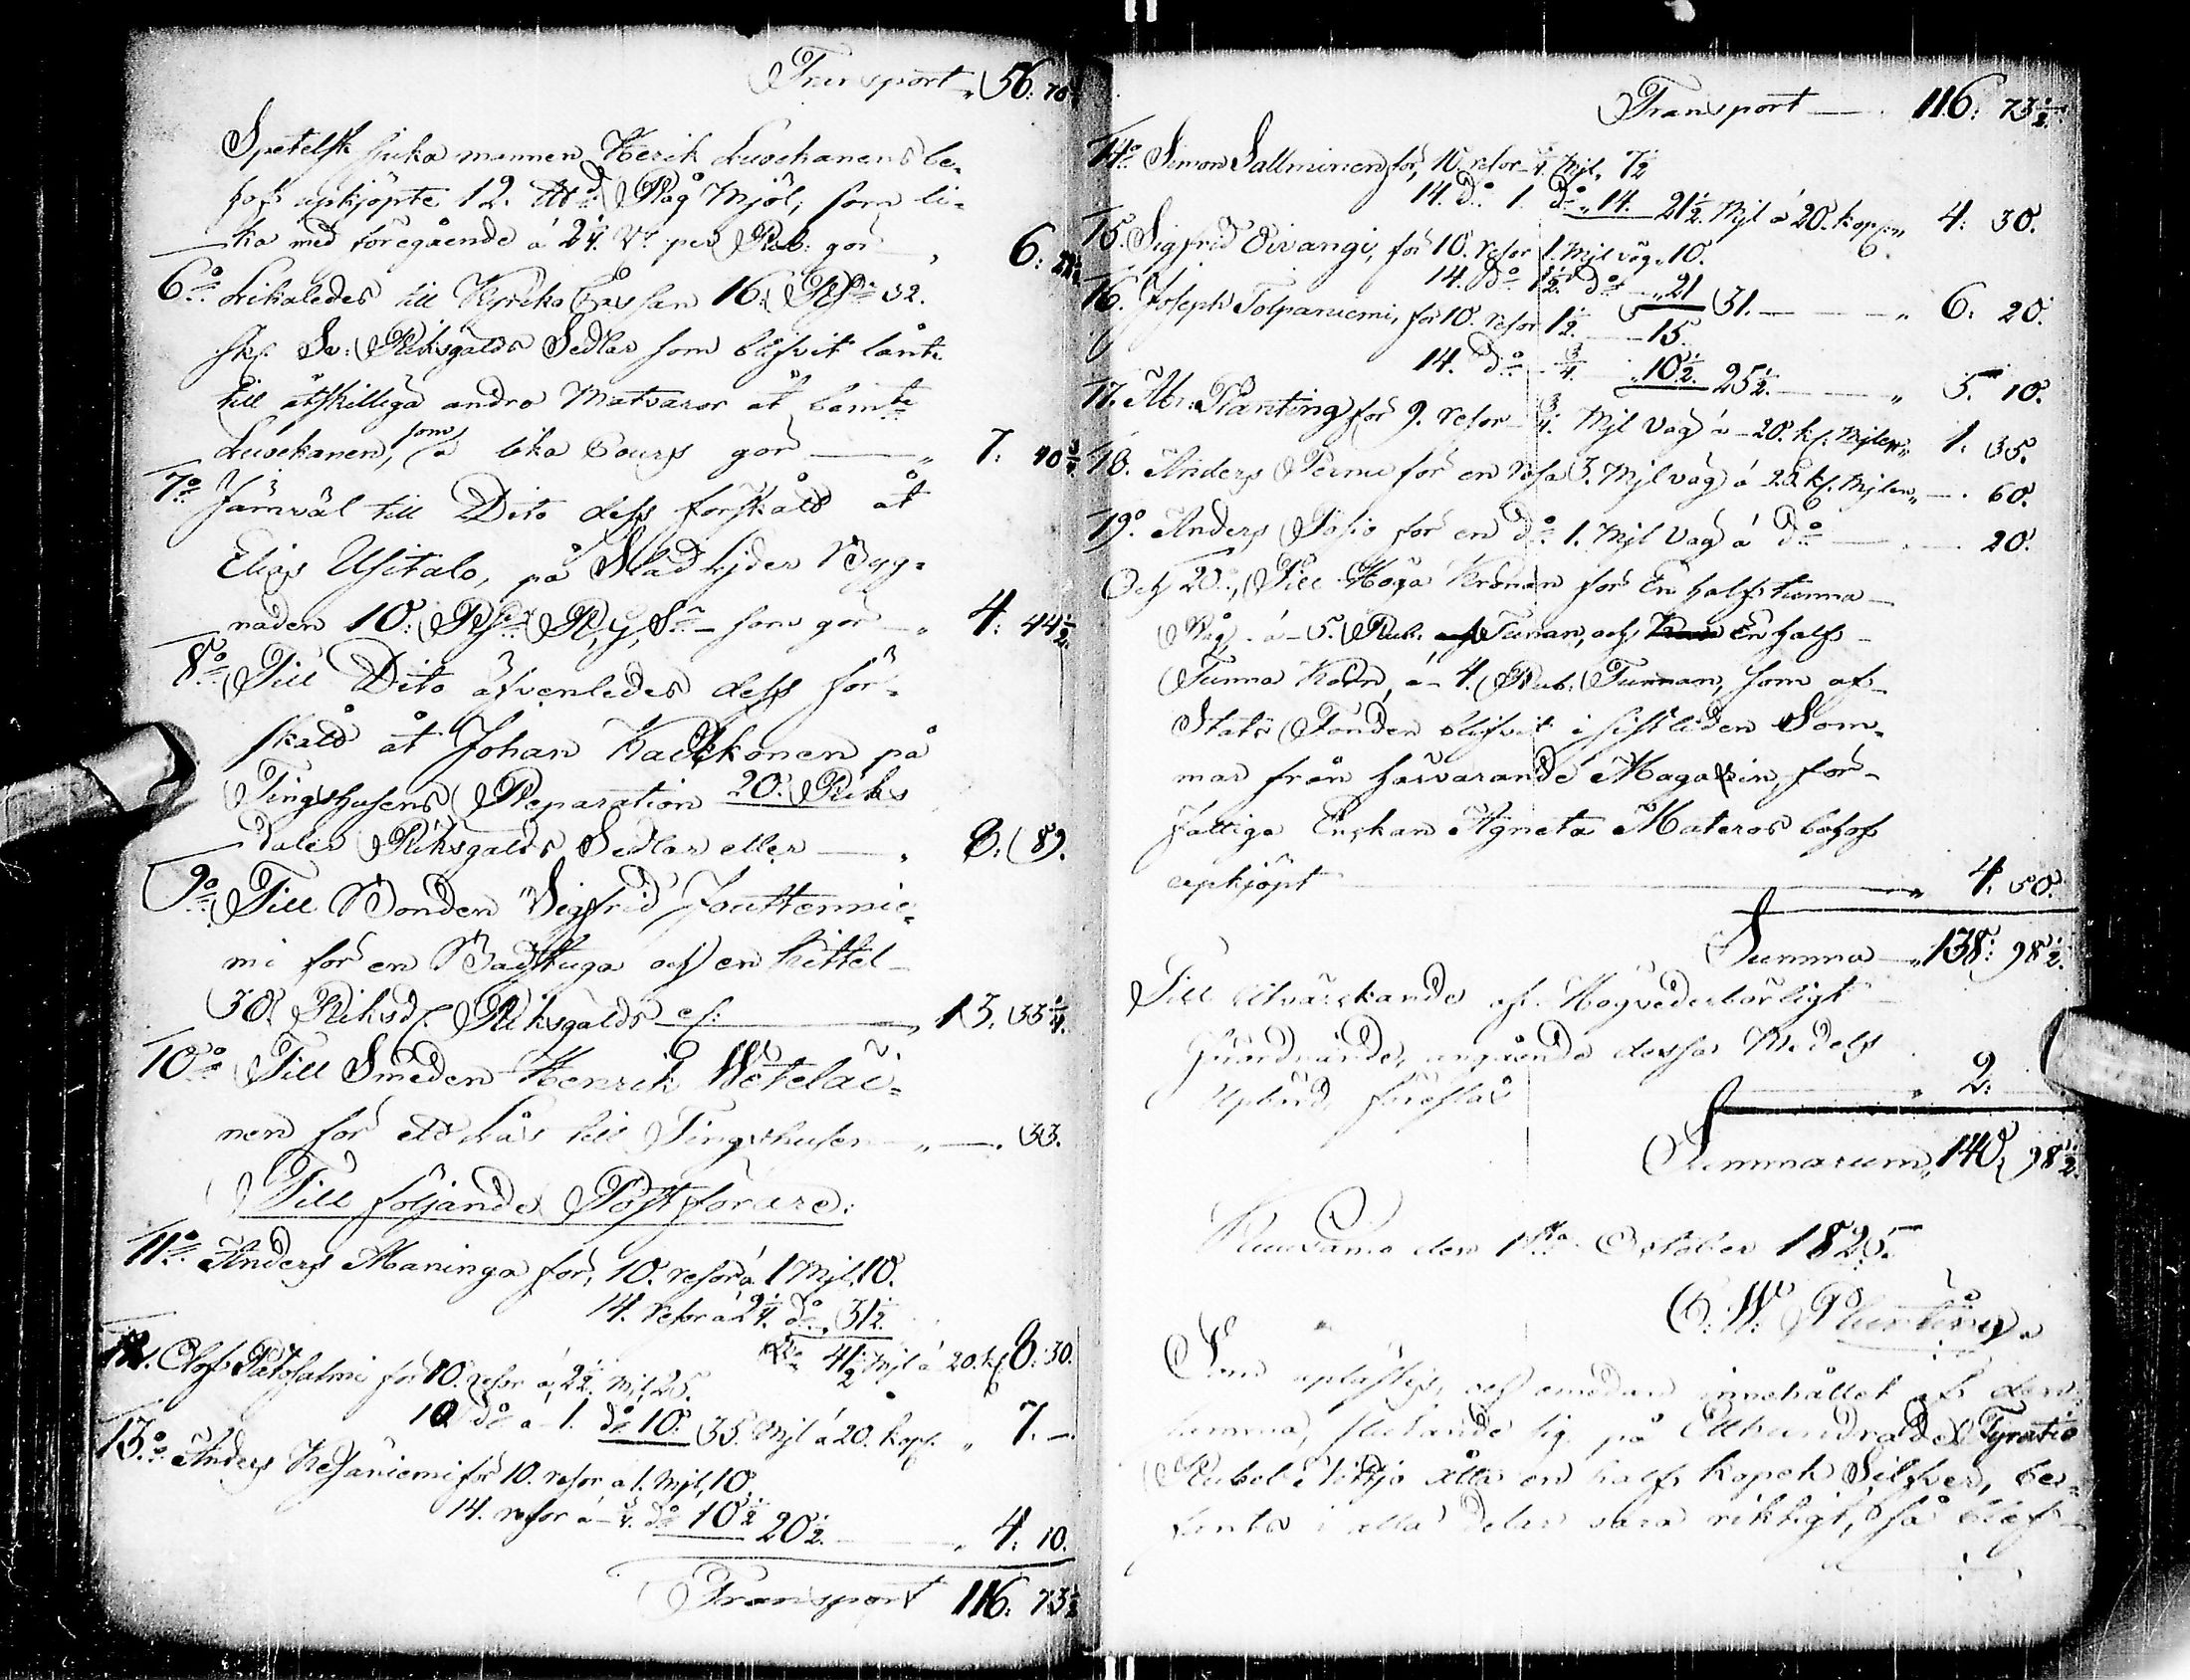 Transport „ 56: 70
Spetelsk sjuka mannen Henrik Luvekanens be-
hof upkjöpte 12. ℔d Råg Mjöl, som li-
ka med föregående á 2¼. Rr per Rub: gör „ 6: 22½
6o Likaledes till Kyrko Cassan 16. Rdr 32.
sk. Sv: Riksgälds Sedlar som blifvit lånte
till åtskilliga andra Matvaror åt bemte
Luvekanen, som á lika Cours gör — „ 7: 40¾
7o Jämväl till Dito dess förskått åt
Elias Usitalo, på Stadsljder Byg-
naden 10: Rdr R, g, Sr som gör „ 4: 44½.
8o Till Dito äfvenledes dess för-
skått åt Johan Kackkonen på
Tingshusens Reparation 20. Riks
daler Riksgälds Sedlar eller — „ 8: 89.
9o Till Bonden Sigfrid Jouttennie-
mi för en Badstuga och en kittel
30. Riksd. Riksgälds — „ 13. 33¼.
10o Till Smeden Henrik Wetelai-
nen för ett lås till Tingshusen „ — . 33.
Till följande Postförare:
11o Anders Maninga för, 10. resor á 1 Mjl. 10.
14. resor á 2¼. do „ 31½.
41½ Mjl á 20. k. 8: 30.
12. Olof Patosalmi för 10. resor á 2½. Mjl 25.
10 do á 1. do 10. 35. Mjl á 20. kop. „ 7. —
13.o Anders Kesäniemi för 10. resor á 1. Mjl, 10.
14. resor á ¾. do 10½ 20½. — „ 4: 10.
Transport 116. 73½
Transport — 116: 73½.
14o Simon Sallminen för, 10. resor ¾. Mjl. 7½
14. do 1. do „ 14. 21½. Mjl á 20. kop. „ 4: 30.
15. Sigfrid Oivangi, för 10. resor 1. Mjl väg 10.
14. do 1½. do „ 21 31. — „ 6: 20.
16. Joseph Tolpaniemi, för 10. resor 1½. — 15.
14. do ¾. „ 10½. 25½. — „ 5. 10.
17. Ab: Planting för 9. resor ¾. Mjl väg á 20. k. Mjlen „ 1. 35.
18. Anders Perno för en resa 3. Mjl väg á 20. k. Mjlen „ — . 60.
19o. Anders Posio för en do 1. Mjl väg á do — . — 20.
Och 20., Till Höga Kronan för En half tunna
Råg, á 5. Rub. Tunan, och En half
Tunna Korn, á 4. Rub. Tunnan, som af
Stats Fonden blifvit i sistliden Som-
mar från härvarande Magazin, för
fattiga Enckan Agneta Materos behof
upkjöpt — „ 4. 50.
Summa „ 138: 98½.
Till utvärckande af Högvederbörligt
Förordnande, angående dessa Medels
Upbörd, föreslås — „ 2: —
Summarum, 140, 98½.
Kuusamo den 1sta October 1825.
C. W. Planting.
Som upläst, och emedan innehållet af den-
samma, slutande sig på Etthundrade Fyratio
Rubel Nittjo åtta en half kopek Silfver, be-
fants i alla delar vara riktigt, så blef